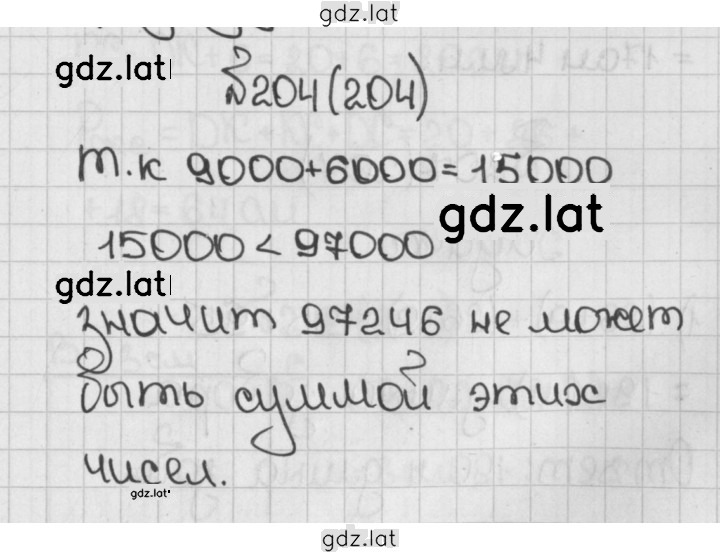 gdz.lat
gdz.lat
№204(204)
т.к 9000+6000=15000
gdz.lat
15000<97000
gdz.lat
значит 97246 не может
быть суммой этих
чисел.
gdz.lat
gdz.lat